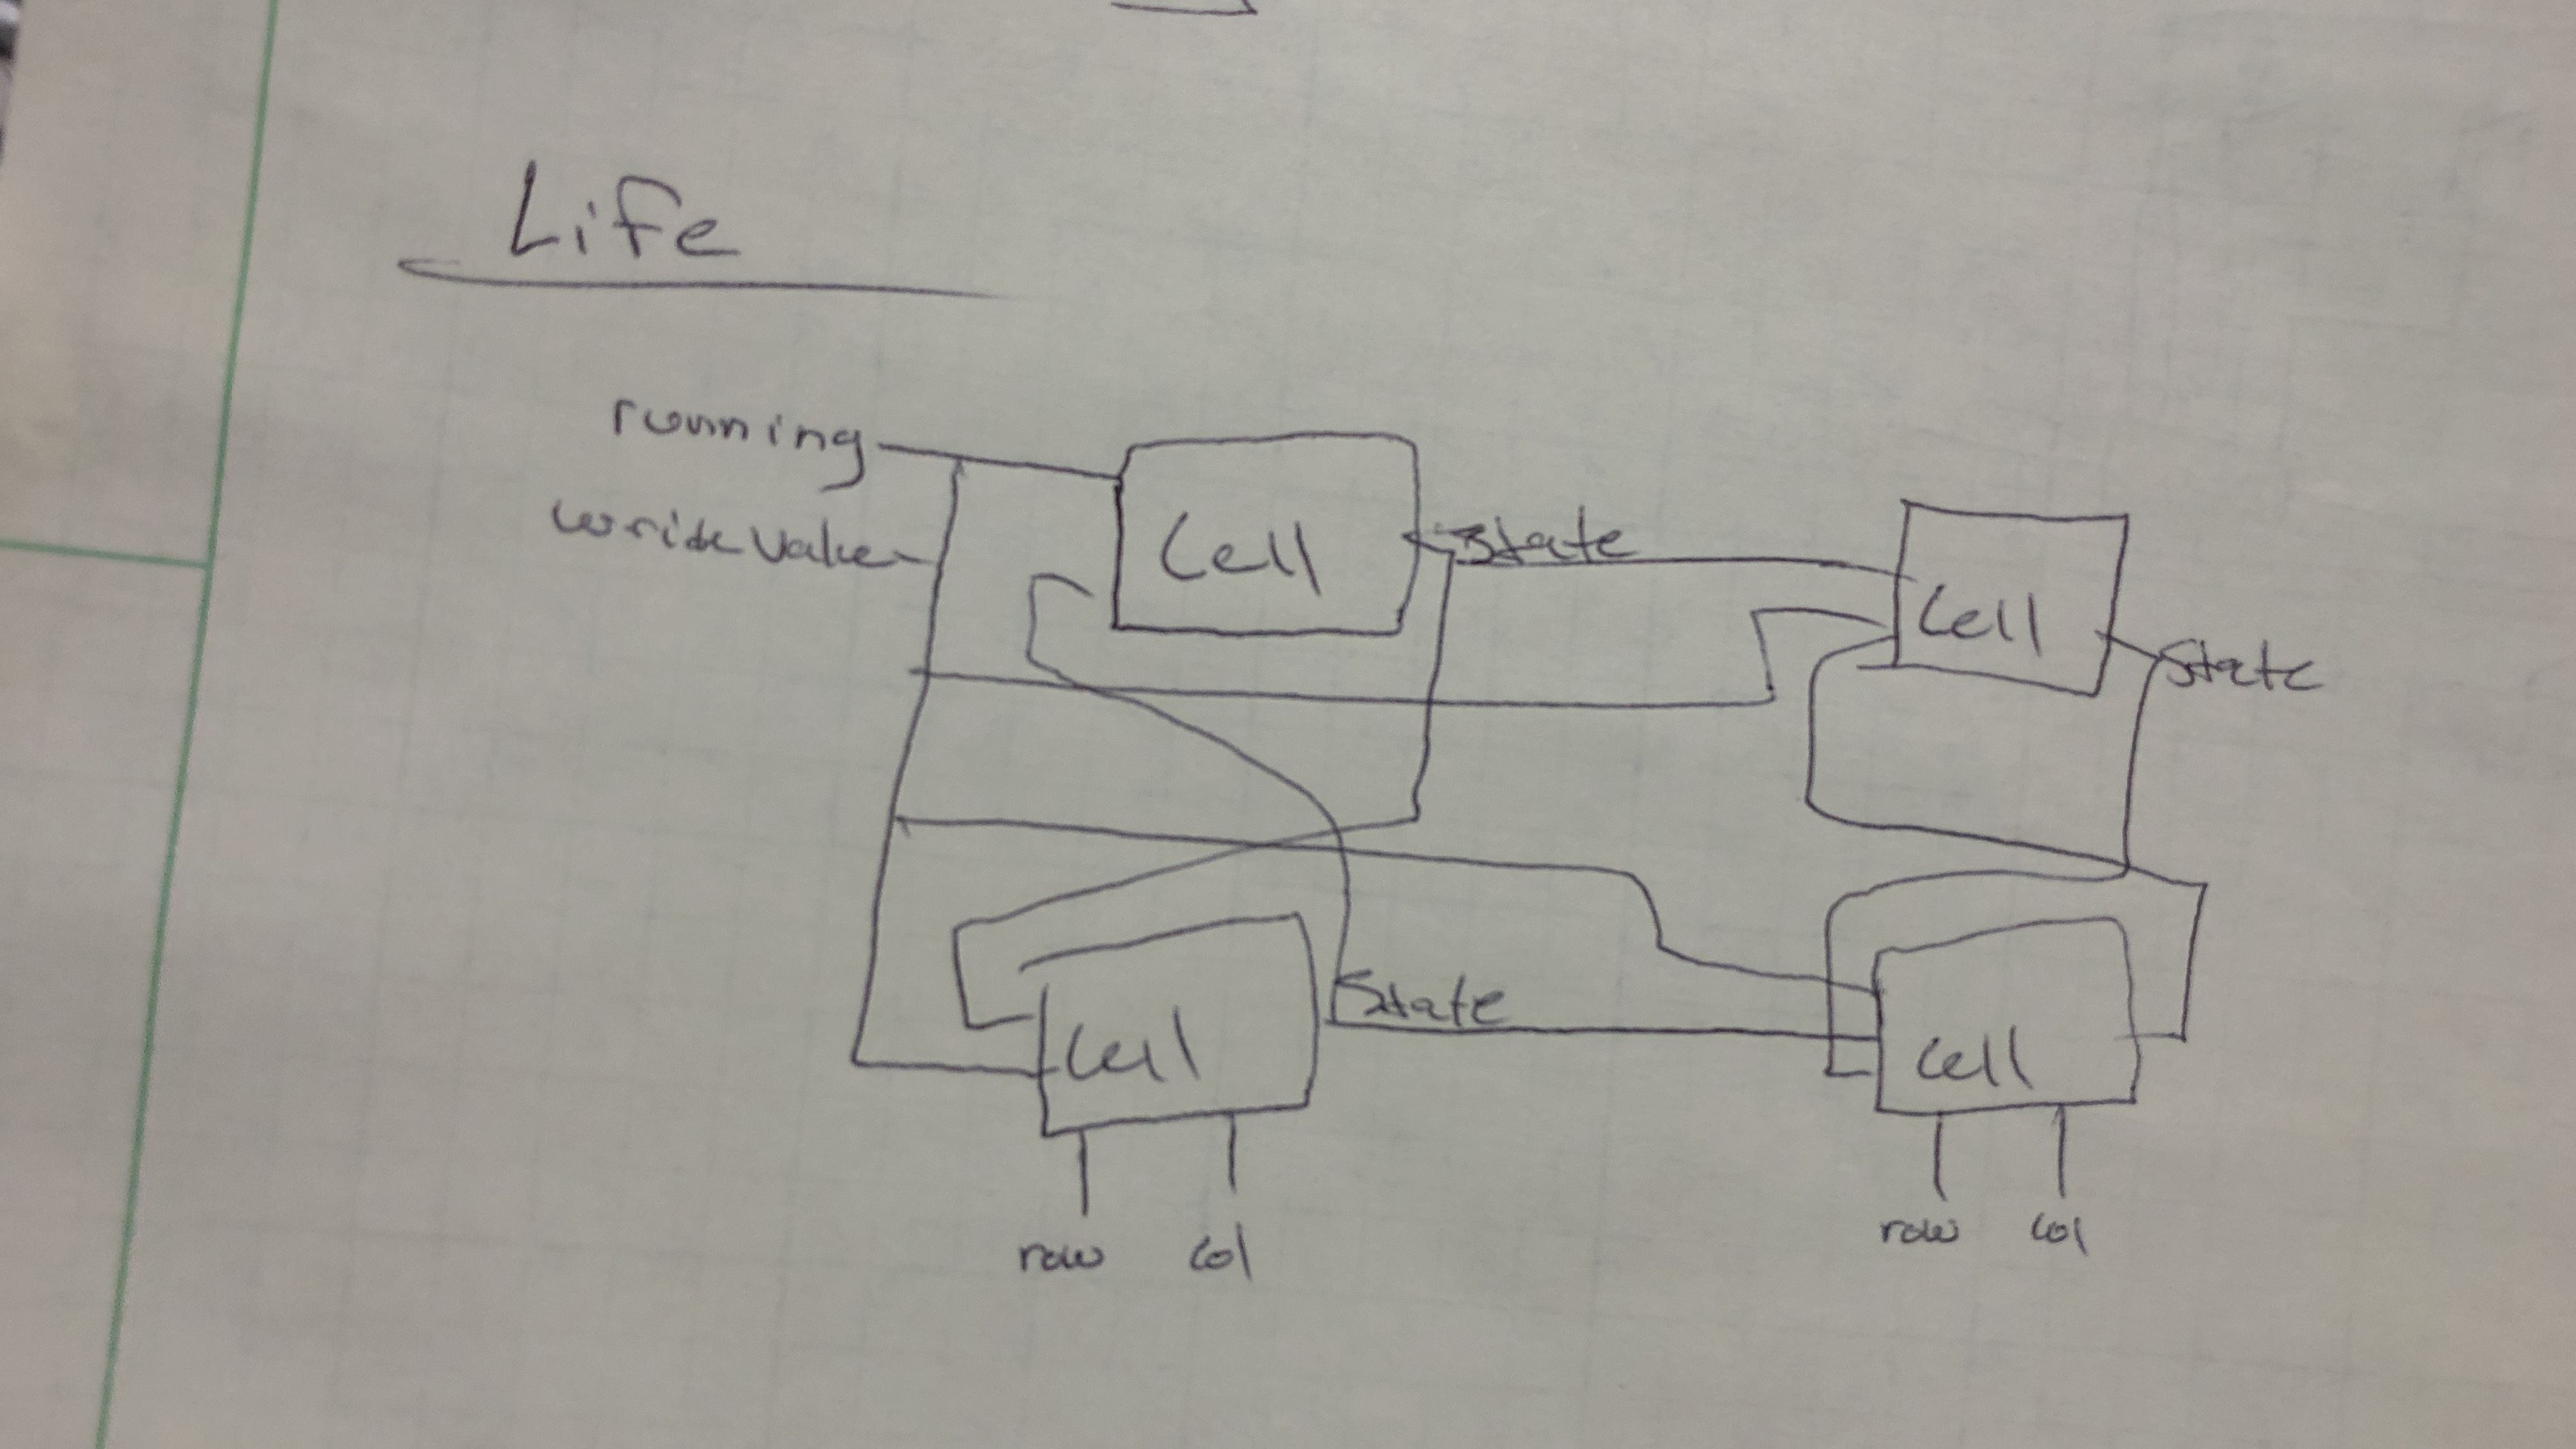 Life
running
write Value
Cell
State
Cell
State
Cell
State
Cell
row col
row col